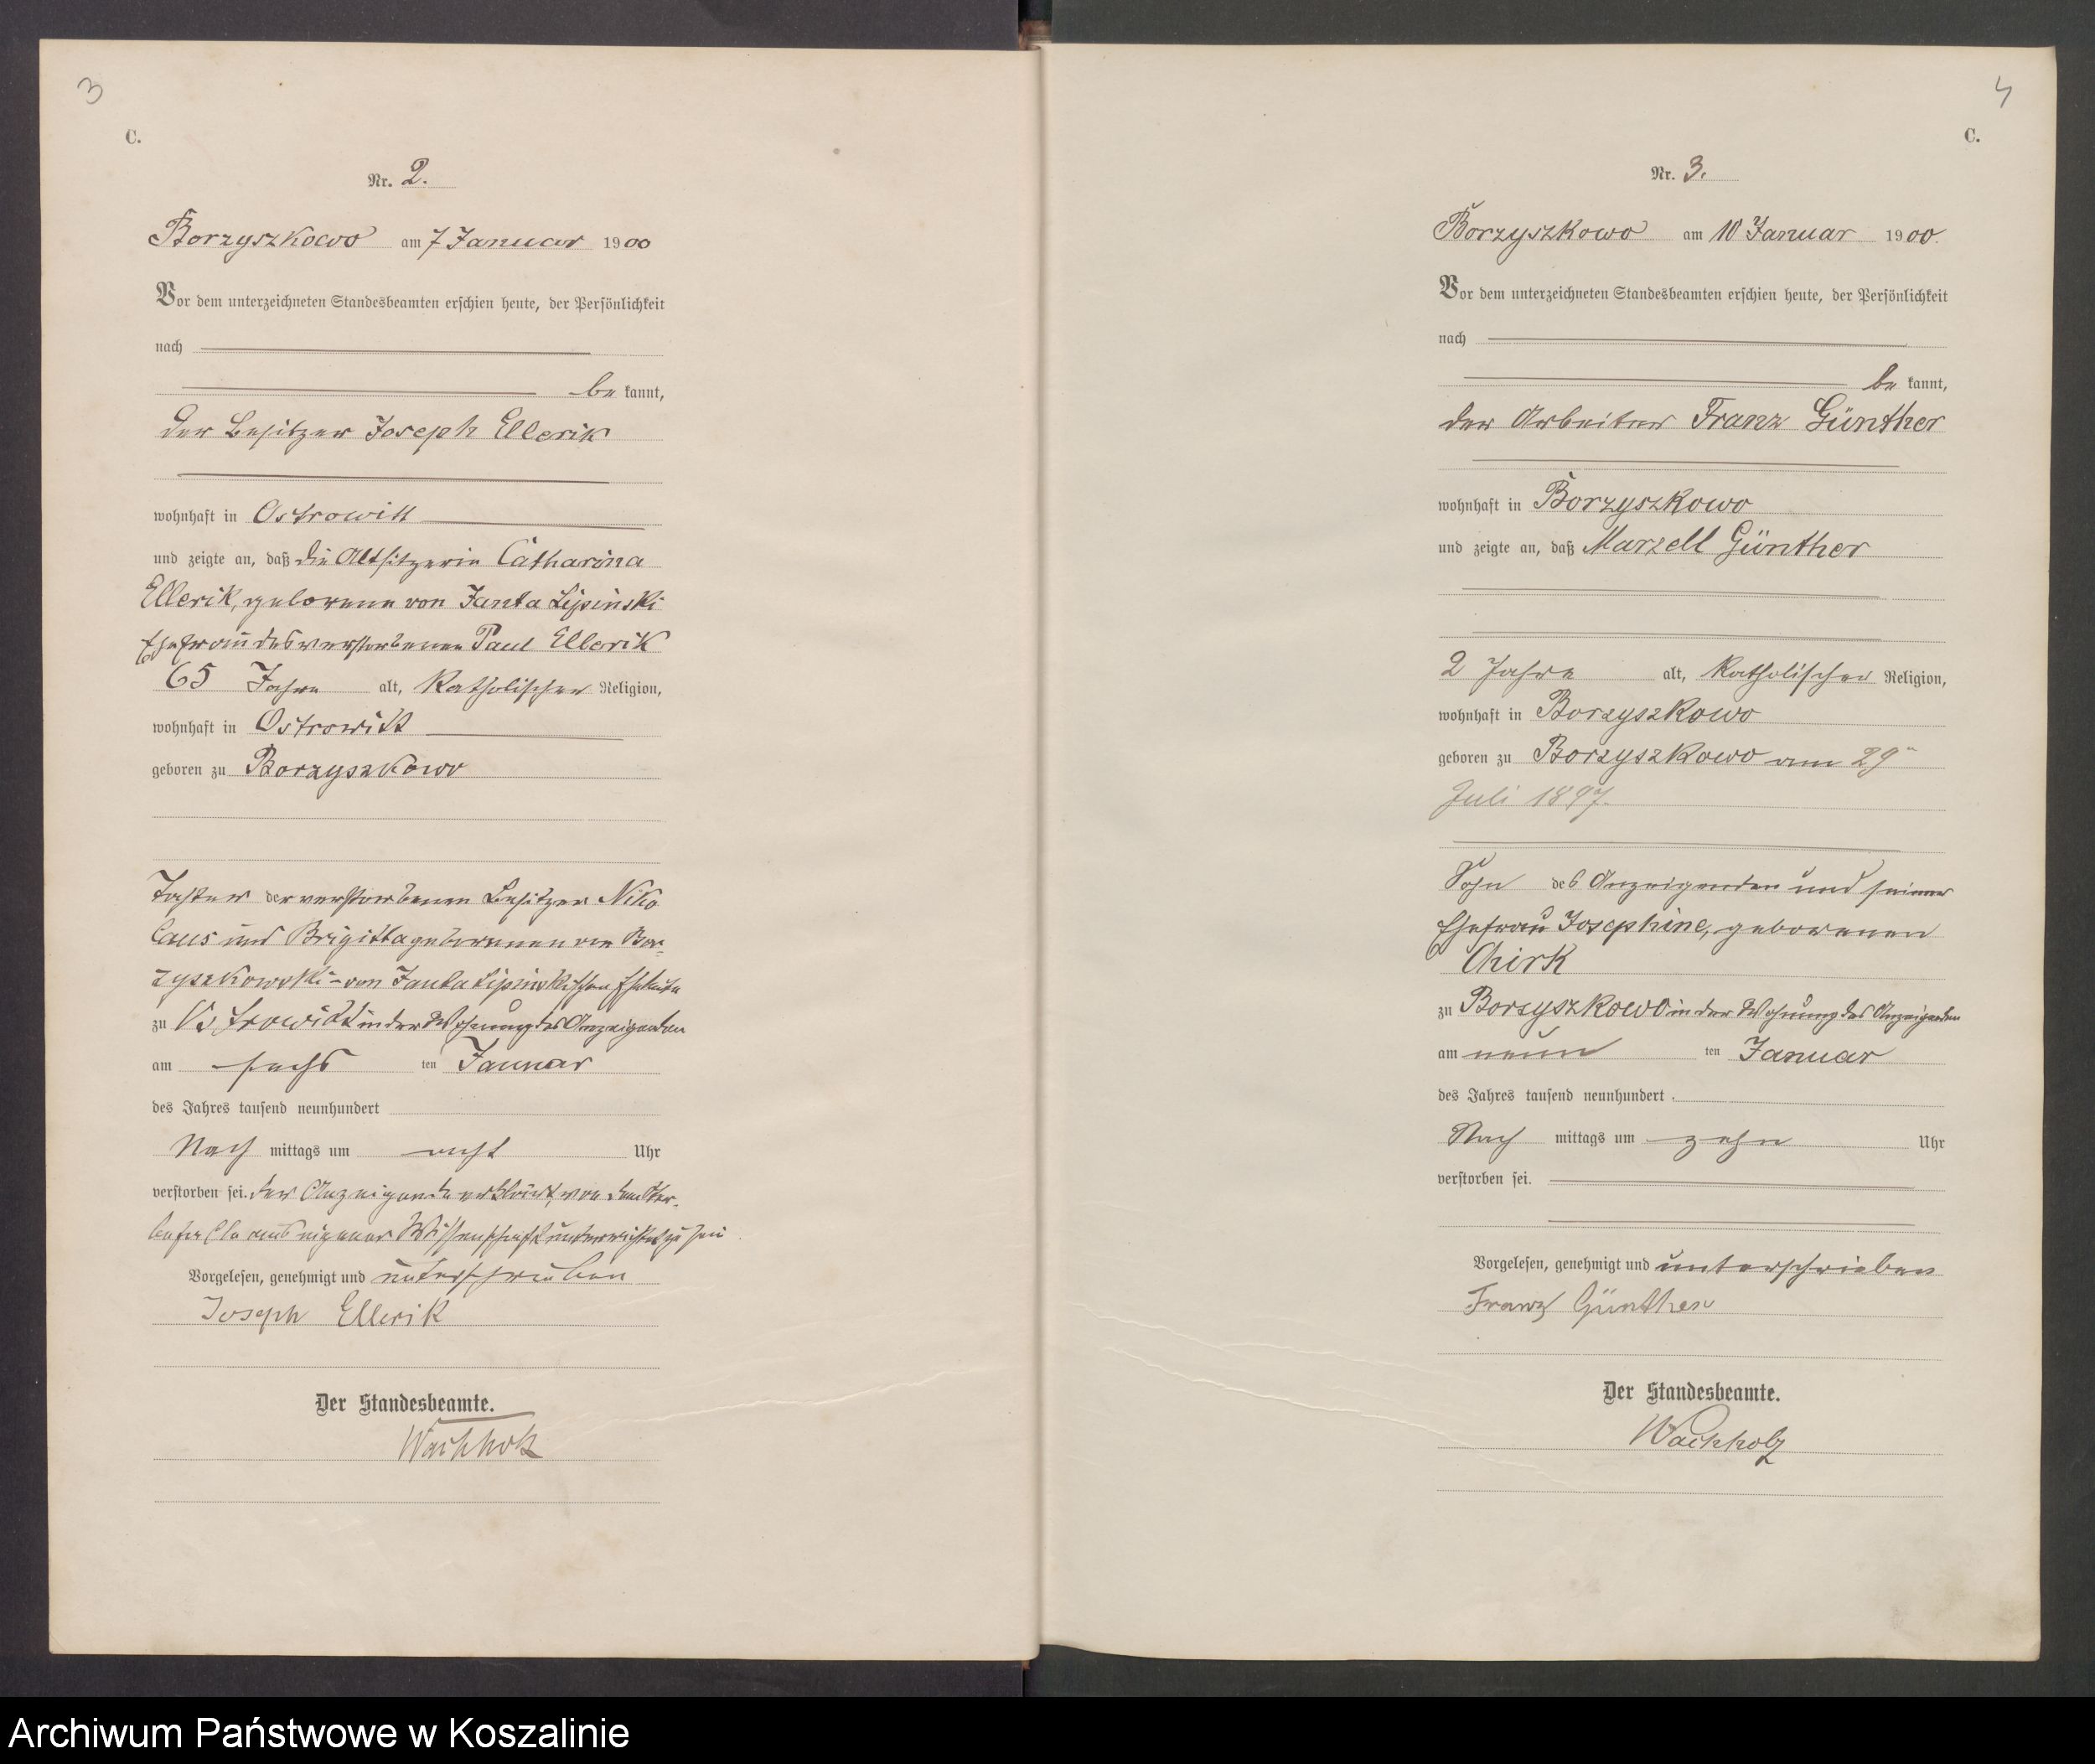 3
C.
Nr. 2.
Borzyszkowo am 7 Januar 1900
Vor dem unterzeichneten Standesbeamten erschien heute, der Persönlichkeit
nach
be kannt,
der Besitzer Joseph Ellerik
wohnhaft in Ostrowitt
und zeigte an, daß die Altsitzerin Catharina
Ellerik, geborene von Janta Lipinski
Ehefrau des verstorbenen Paul Ellerik
65 Jahre alt, Katholischer Religion,
wohnhaft in Ostrowitt
geboren zu Borzyszkowo
Tochter der verstorbenen Besitzer Niko
laus und Brigitta geborenen von Bor-
zyszkowski-von Janta Lipinskischen Eheleute
zu Ostrowitt in der Wohnung des Anzeigenden
am sechs ten Januar
des Jahres tausend neunhundert
Nach mittags um acht Uhr
verstorben sei. der Anzeigende erklärt, von dem Ster-
befalle aus eigener Wissenschaft unterrichtet zu sein
Vorgelesen, genehmigt und unterschrieben
Joseph Ellerik
Der Standesbeamte.
Wachholz
4
C.
Nr. 3.
Borzyszkowo am 10 Januar 1900.
Vor dem unterzeichneten Standesbeamten erschien heute, der Persönlichkeit
nach
be kannt,
der Arbeiter Franz Günther
wohnhaft in Borzyszkowo
und zeigte an, daß Marzell Günther
2 Jahre alt, Katholischer Religion,
wohnhaft in Borzyszkowo
geboren zu Borzyszkowo am 29ten
Juli 1897.
Sohn des Anzeigenden und seiner
Ehefrau Josephine, geborenen
Chirk
zu Borzyszkowo in der Wohnung des Anzeigenden
am neun ten Januar
des Jahres tausend neunhundert
Nach mittags um zehn Uhr
verstorben sei.
Vorgelesen, genehmigt und unterschrieben
Franz Günther
Der Standesbeamte.
Wachholz
Archiwum Państwowe w Koszalinie